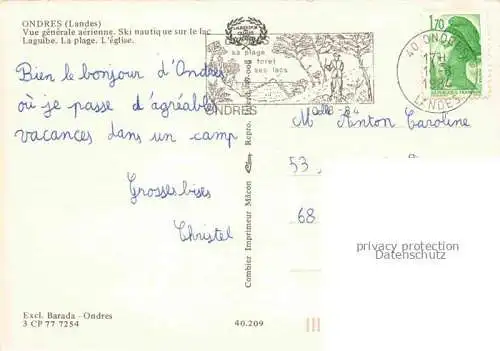 ONDRES (Landes)
Vue générale aérienne. Ski nautique sur le lac
Laguibe. La plage. L'église.
Bien le bonjour d'Ondres
où je passe d'agréables
vacances dans un camp
Grosses bises
Christel
Excl. Barada - Ondres
3 CP 77 7254
40.209
Combier Imprimeur Mâcon
Repro.
sa plage
foret
ses lacs
ONDRES
40 ONDRES
17H
LANDES
1,70
Melle Anton Caroline
53,
68
privacy protection
Datenschutz